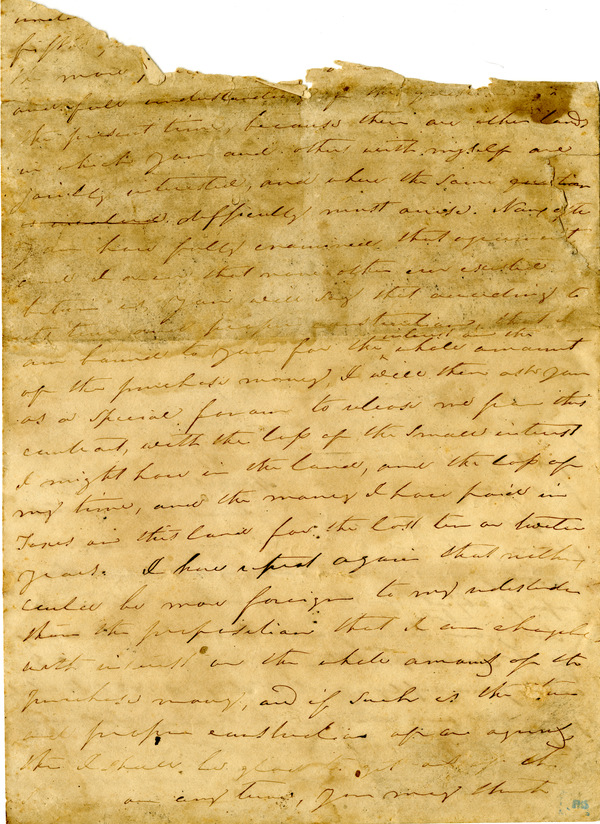 unde
the more
and full understanding of the
the present time, because there are other lands
in which you and others with myself are
jointly interested, and where the same question
difficulty must arise. Now, after
you have fully examined that agreement
and I aver that none other ever existed
between us you will say that according to
its true and proper construction, that I
interest on the
am bound to you for the whole amount
of the purchase money, I will then ask you
as a special favour to release me from this
contract, with the loss of the small interest
I might have in the land, and the loss of
my time, and the money I have paid in
Taxes on this land for the last ten or twelve
years. I here repeat again that nothing
could be more foreign to my understanding
than the proposition that I am chargeable
with interest on the whole amount of the
purchase money, and if such is the true
and proper construction of our agree
I shall be glad to get rid of it
on any terms, you may think